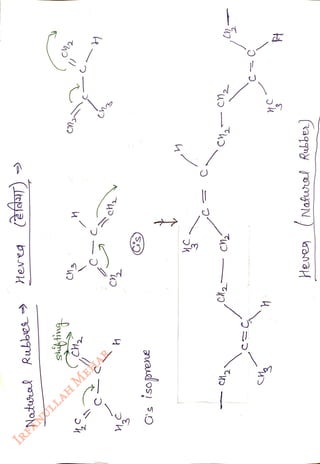 Natural Rubber → Hevea (हेविया) →
shifting
H₂C C CH₂
H₃C C H
CH₃ H
C C
CH₂ CH₂
CH₂ CH₂
C C H
CH₃
Cis isoprene
Cis
H₃C H H₃C H
CH₂ C = C CH₂ CH₂ CH₂ C = C CH₂
CH₂ C = C CH₂
CH₃ H
Hevea (Natural Rubber)
IRFANULLAH MEHAR